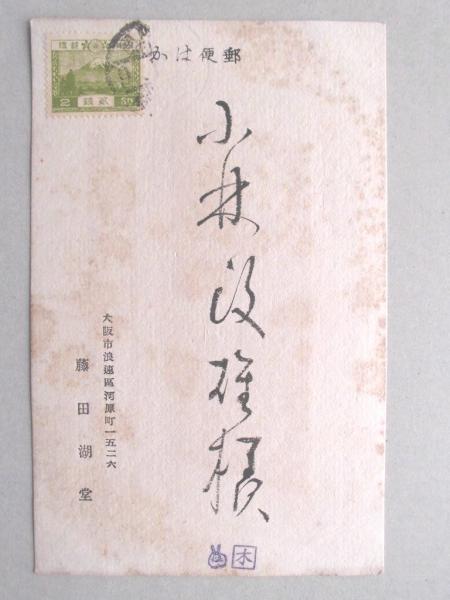 郵便はか
2 貳錢 SN
小林雄様
大阪市浪速區河原町一五二六
藤田湖堂
木